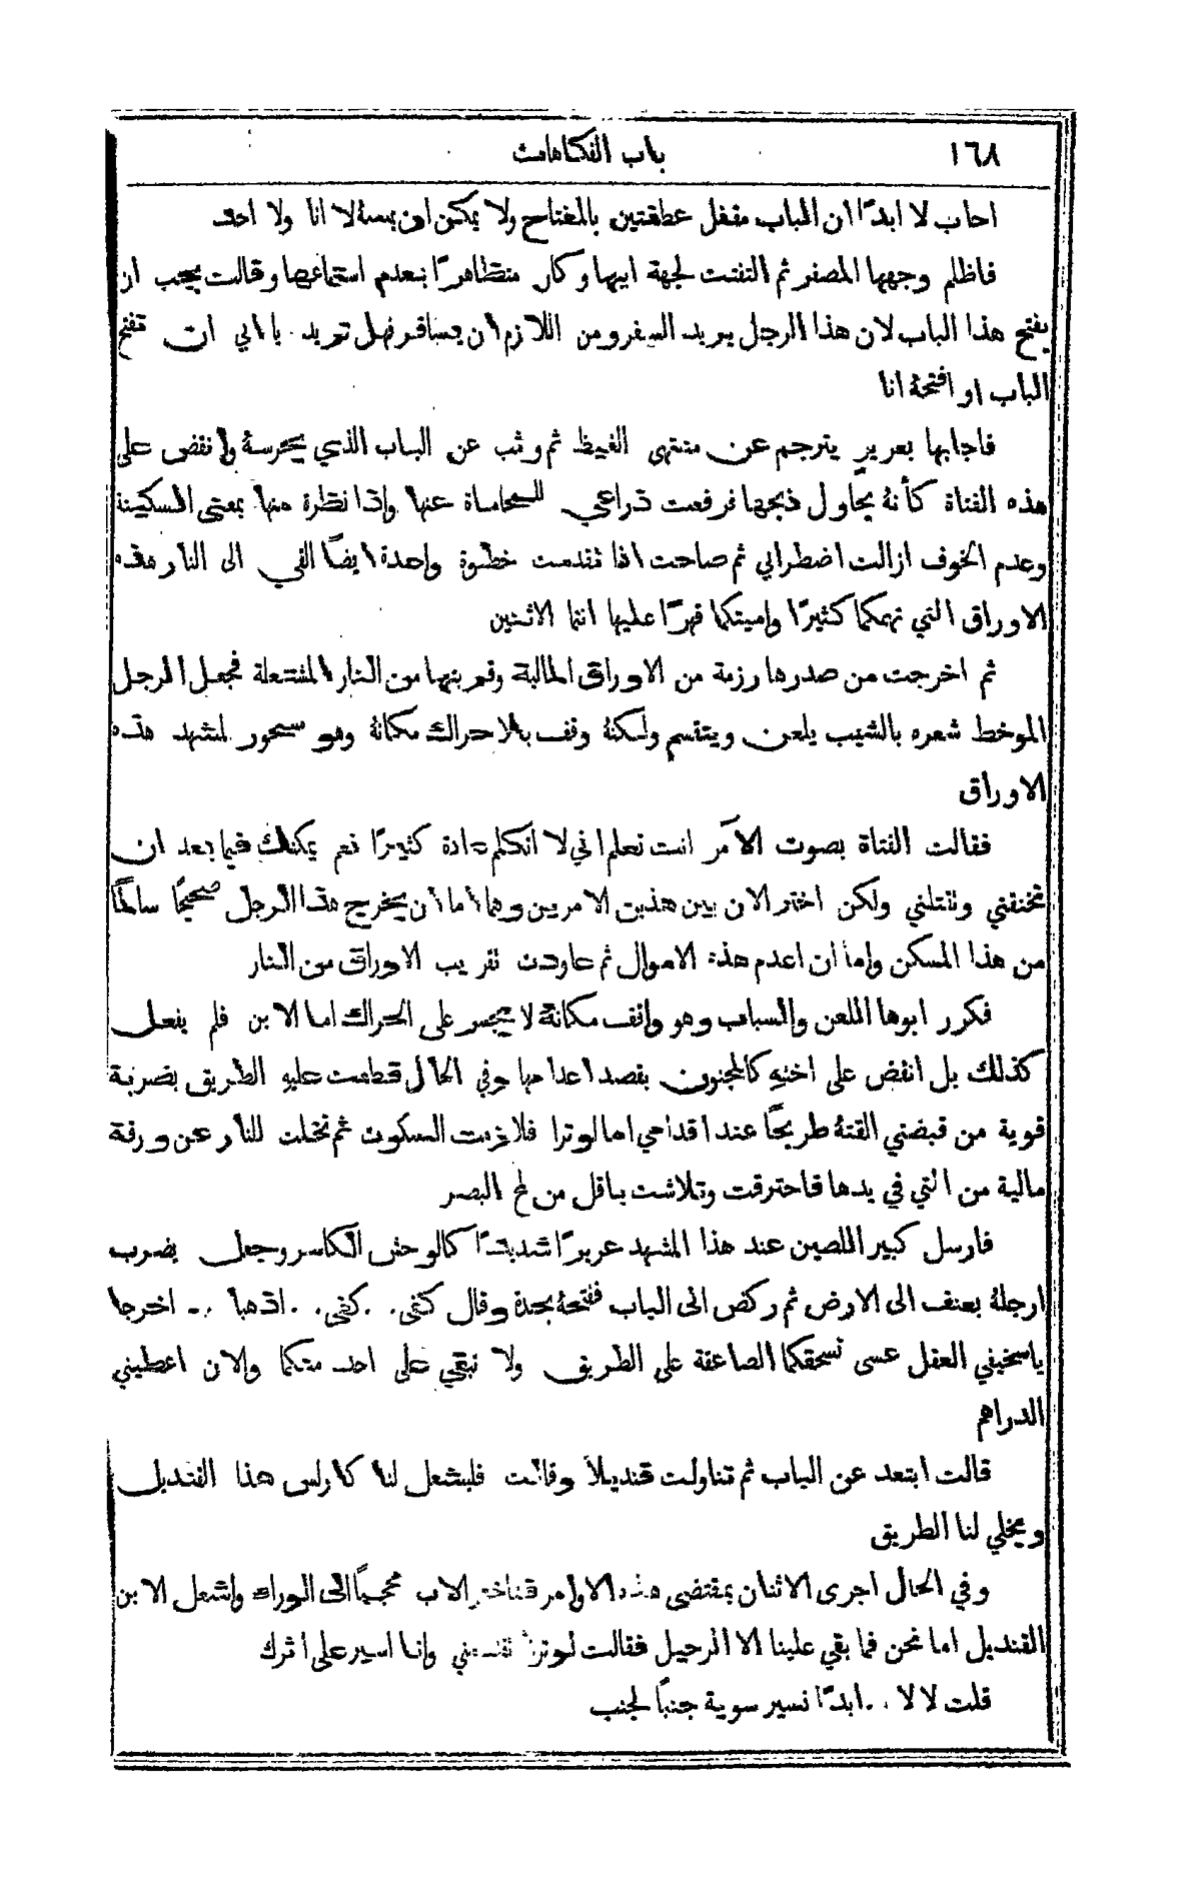 ١٦٨ باب الفكاهات
اجاب لا ابدًا ان الباب مقفل بالمفتاح ولا يمكن ان يمسهُ لا انا ولا احد
فاظلم وجهها المصفر ثم التفتت لجهة ابيها وكان متظاهرًا بعدم استماعها وقالت يجب ان
يفتح هذا الباب لان هذا الرجل يريد السفر ومن اللازم ان يسافر فهل تريد يا ابي ان تفتح
الباب او افتحهُ انا
فاجابها بعرير يترجم عن منتهى الغيظ ثم وثب عن الباب الذي يحرسهُ وانقض على
هذه الفتاة كأنهُ يحاول ذبحها فرفعت ذراعي للمحاماة عنها واذا نظرة منها بمعنى السكينة
وعدم الخوف ازالت اضطرابي ثم صاحت اذا تقدمت خطوة واحدة ايضًا القي الى النار هذه
الاوراق التي تهمكما كثيرًا واميتكما قهرًا عليها انتما الاثنين
ثم اخرجت من صدرها رزمة من الاوراق المالية وقربتها من النار المشتعلة فجعل الرجل
الموخط شعره بالشيب يلعن ويتقسم ولكنهُ وقف بلا حراك مكانهُ وهو مسحور لمشهد هذه
الاوراق
فقالت الفتاة بصوت الآمر انت تعلم اني لا اتكلم عادة كثيرًا نعم يمكنك فيما بعد ان
تخنقني وتقتلني ولكن اختر الان بين هذين الامرين وهما اما ان يخرج هذا الرجل صحيحًا سالمًا
من هذا المسكن واما ان اعدم هذه الاموال ثم عاودت تقريب الاوراق من النار
فكرر ابوها اللعن والسباب وهو واقف مكانهُ لا يجسر على الحراك اما الابن فلم يفعل
كذلك بل انقض على اختهِ كالمجنون بقصد اعدامها وفي الحال قطعت عليهِ الطريق بضربة
قوية من قبضتي القتهُ طريحًا عند اقدامي اما لوترا فلازمت السكون ثم تخلت للنار عن ورقة
مالية من التي في يدها فاحترقت وتلاشت باقل من لمح البصر
فارسل كبير اللصين عند هذا المشهد عريرًا شديدًا كالوحش الكاسر وجعل يضرب
ارجلهُ بعنف الى الارض ثم ركض الى الباب ففتحهُ بحدة وقال كفى. .كفى. .اذهبا .. اخرجا
ياسخيفي العقل عسى تسحقكما الصاعقة على الطريق ولا تبقي على احد منكما والان اعطيني
الدراهم
قالت ابتعد عن الباب ثم تناولت قنديلًا وقالت فليشعل لنا كارلس هذا القنديل
ويخلي لنا الطريق
وفي الحال اجرى الاثنان بمقتضى هذه الاوامر فتأخر الاب محجمًا الى الوراء واشعل الابن
القنديل اما نحن فما بقي علينا الا الرحيل فقالت لوترا تقدمني وانا اسير على اثرك
قلت لا لا . .ابدًا نسير سوية جنبًا لجنب